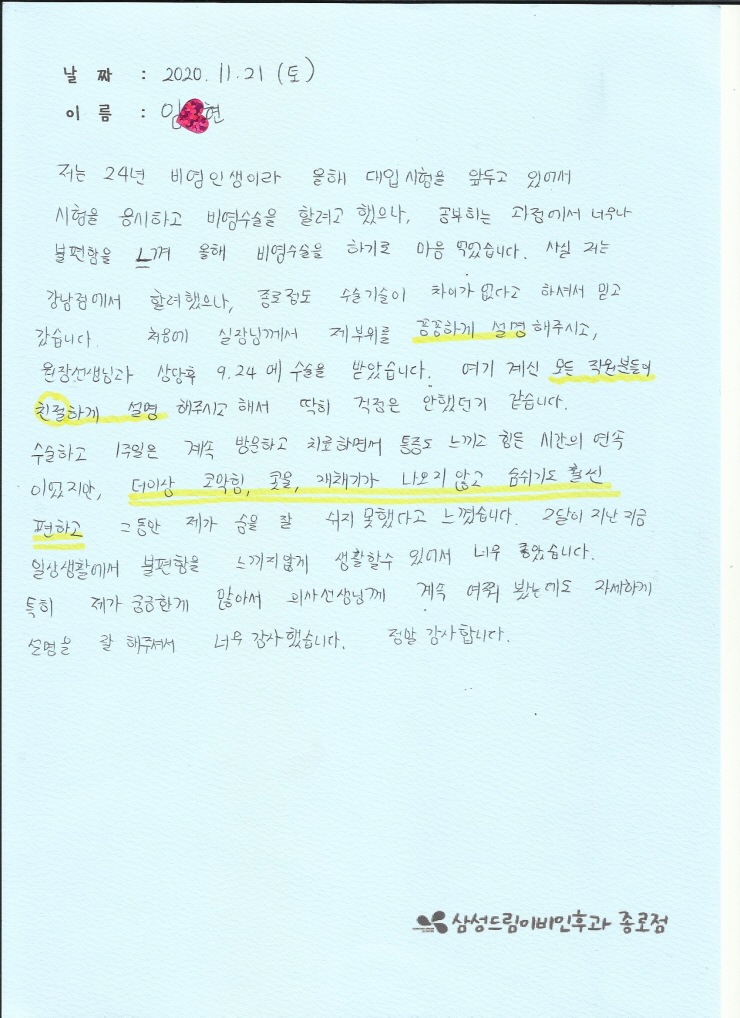 날 짜 : 2020. 11. 21 (토)
이 름 : 임 현
저는 24년 비염인생이라 올해 대입시험을 앞두고 있어서
시험을 응시하고 비염수술을 할려고 했으나, 공부하는 과정에서 너무나
불편함을 느껴 올해 비염수술을 하기로 마음 먹었습니다. 사실 저는
강남점에서 할려했으나, 종로점도 수술기술이 차이가 없다고 하셔서 믿고
갔습니다. 처음에 실장님께서 제부위를 꼼꼼하게 설명해주시고,
원장선생님과 상담후 9.24에 수술을 받았습니다. 여기 계신 모든 직원분들이
친절하게 설명 해주시고 해서 딱히 걱정은 안했던거 같습니다.
수술하고 1주일은 계속 방문하고 치료하면서 통증도 느끼고 힘든 시간의 연속
이었지만, 더이상 코막힘, 콧물, 재채기가 나오지 않고 숨쉬기도 훨씬
편하고 그동안 제가 숨을 잘 쉬지 못했다고 느꼈습니다. 2달이 지난 지금
일상생활에서 불편함을 느끼지않게 생활할수 있어서 너무 좋았습니다.
특히 제가 궁금한게 많아서 의사선생님께 계속 여쭤 봤는데도 자세하게
설명을 잘 해주셔서 너무 감사했습니다. 정말 감사합니다.
삼성드림이비인후과 종로점